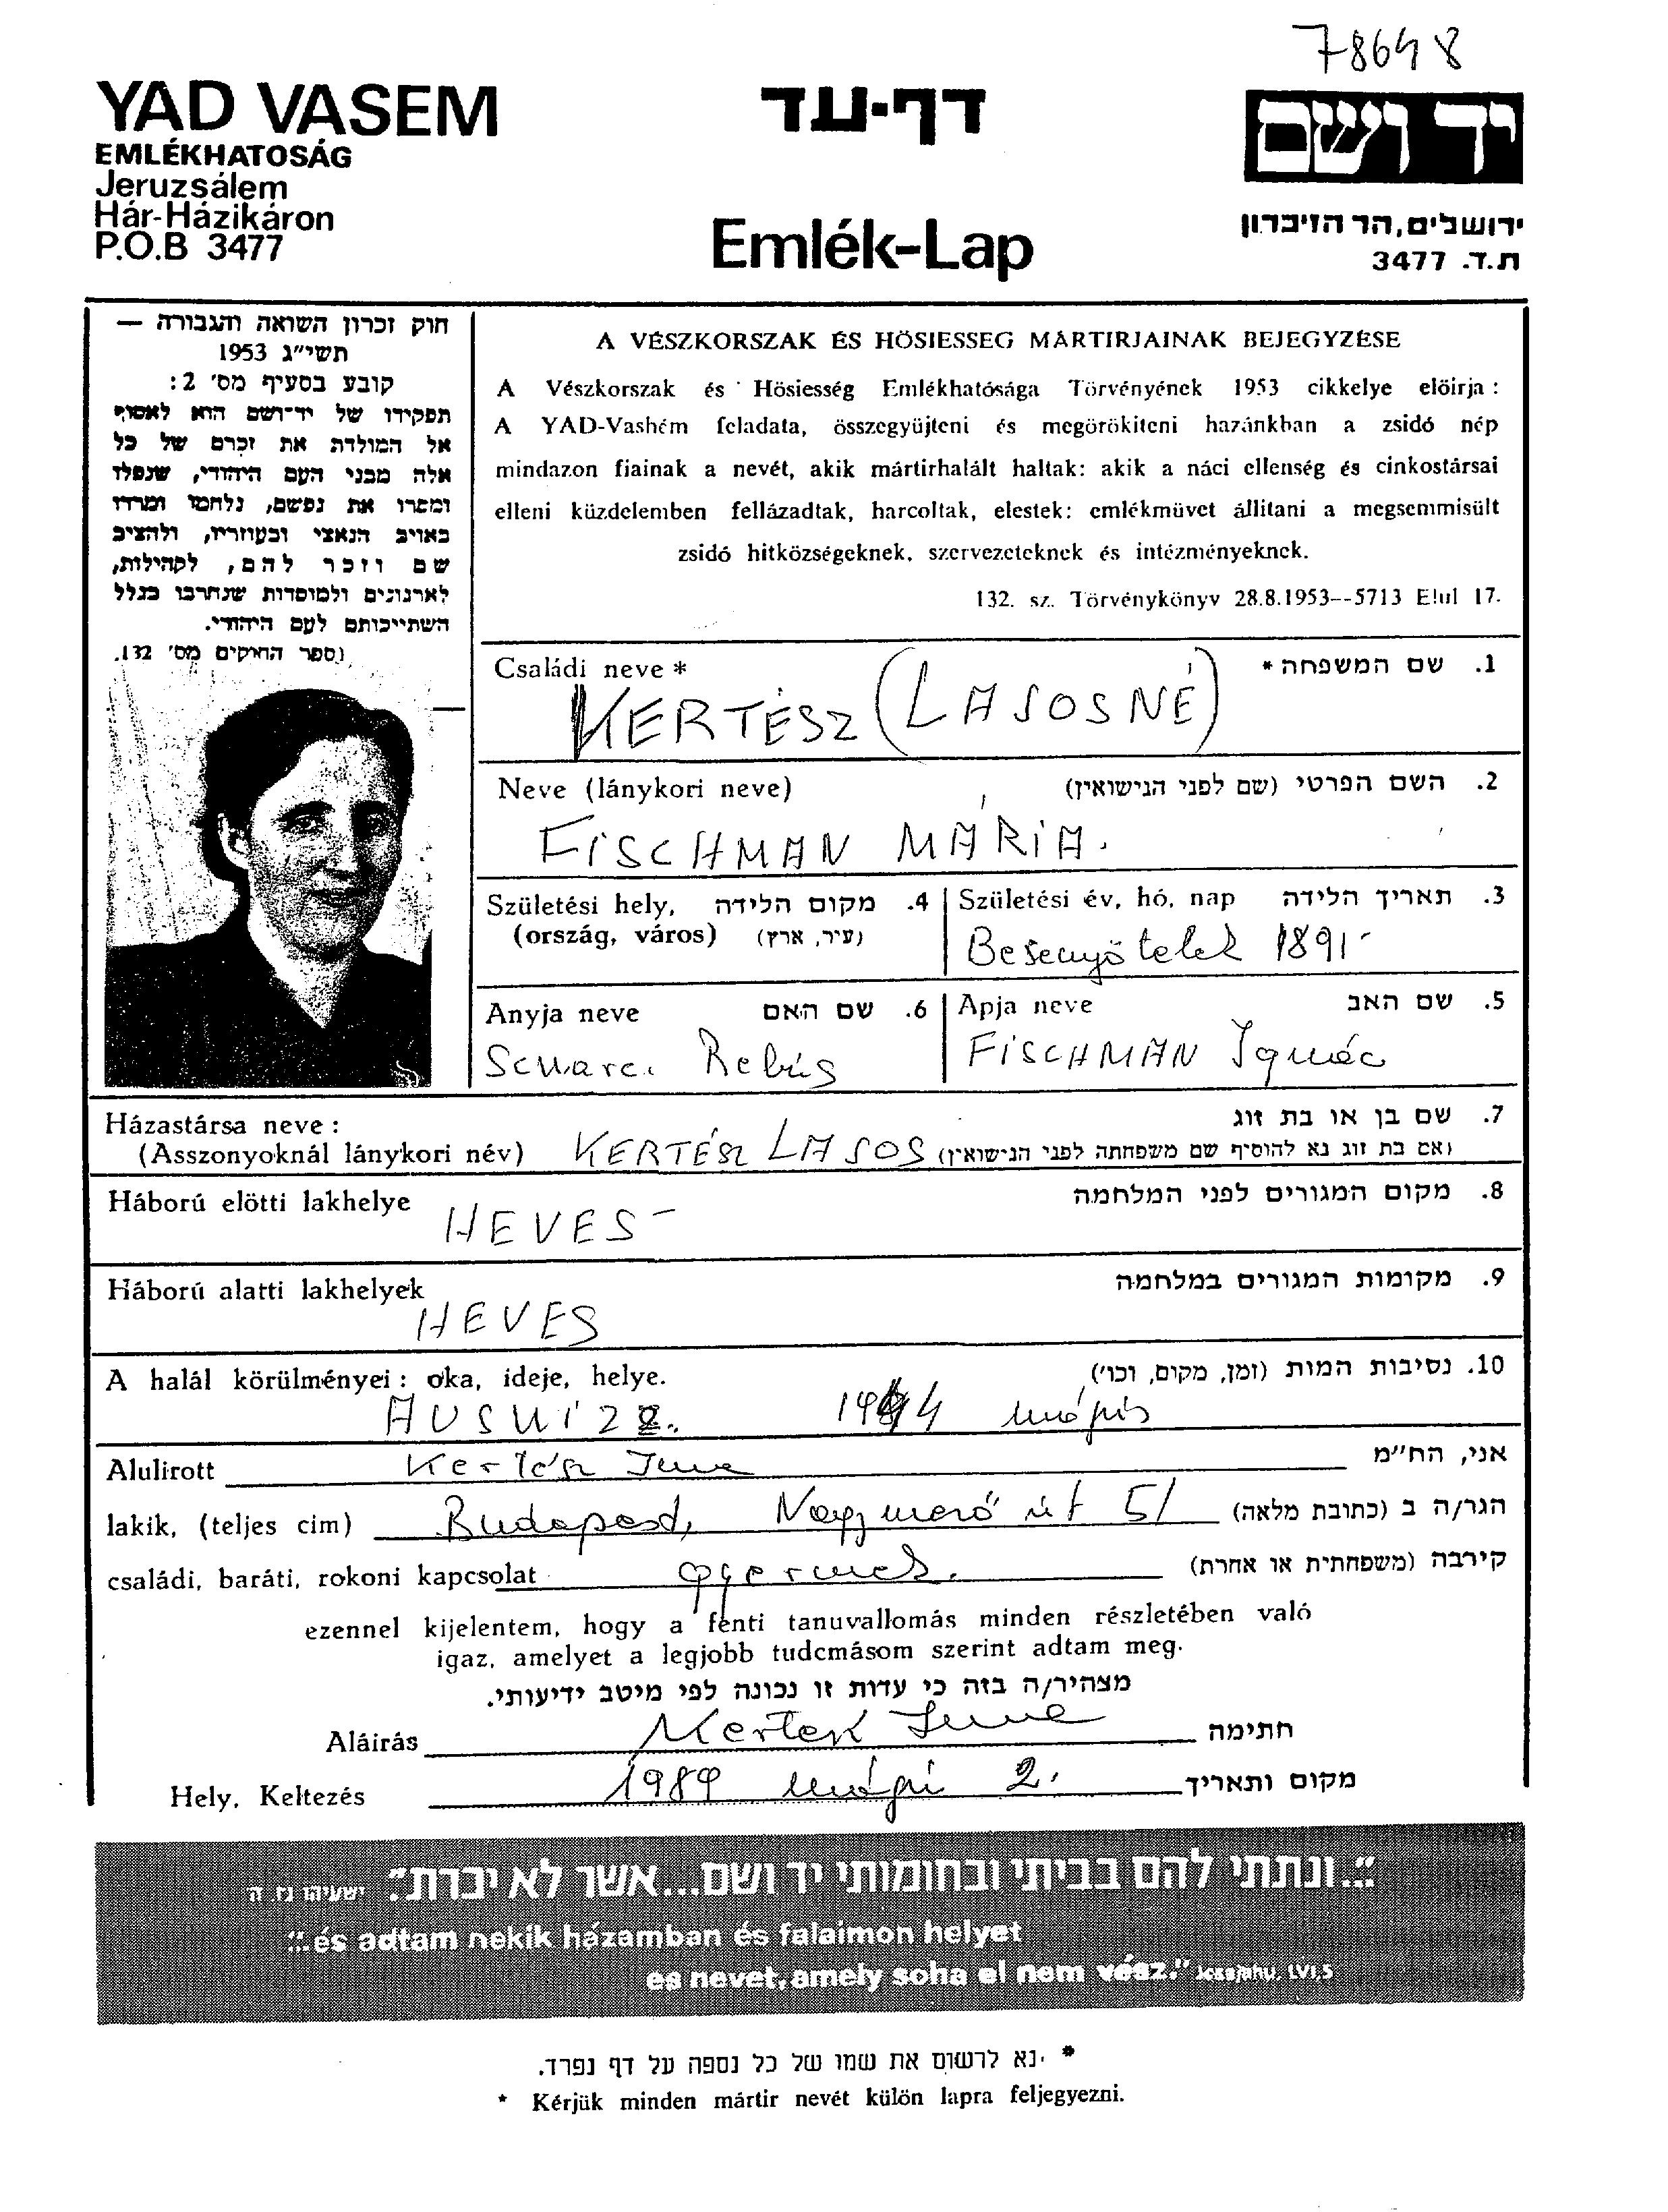 78648
YAD VASEM
EMLÉKHATOSÁG
Jeruzsálem
Hár-Házikáron
P.O.B 3477
דף-עד
Emlék-Lap
יד ושם
ירושלים, הר הזיכרון
ת.ד. 3477
חוק זכרון השואה והגבורה —
תשי"ג 1953
קובע בסעיף מס' 2:
תפקידו של יד-ושם הוא לאסוף
אל המולדת את זכרם של כל
אלה מבני העם היהודי, שנפלו
ומסרו את נפשם, נלחמו ומרדו
באויב הנאצי ובעוזריו, ולהציב
שם וזכר להם, לקהילות,
לארגונים ולמוסדות שנחרבו בגלל
השתייכותם לעם היהודי.
(ספר החוקים מס' 132.
A VÉSZKORSZAK ÉS HÖSIESSEG MÁRTIRJAINAK BEJEGYZÉSE
A Vészkorszak és Hösiesség Emlékhatósága Törvényének 1953 cikkelye elöirja :
A YAD-Vashém feladata, összegyüjteni és megörökiteni hazánkban a zsidó nép
mindazon fiainak a nevét, akik mártirhalált haltak: akik a náci ellenség és cinkostársai
elleni küzdelemben fellázadtak, harcoltak, elestek: emlékmüvet állitani a megsemmisült
zsidó hitközségeknek, szervezeteknek és intézményeknek.
132. sz. Törvénykönyv 28.8.1953--5713 Elul 17.
Családi neve * 1. שם המשפחה *
KERTÉSZ (LAJOSNÉ)
Neve (lánykori neve) 2. השם הפרטי (שם לפני הנישואין)
FISCHMAN MÁRIA.
Születési hely, 4. מקום הלידה
(ország, város) (עיר, ארץ)
Születési év, hó, nap 3. תאריך הלידה
Besenyötelek 1891-
Anyja neve 6. שם האם
Rebús
Apja neve 5. שם האב
FISCHMAN Ignác
Házastársa neve : 7. שם בן או בת זוג
(Asszonyoknál lánykori név) KERTÉSZ LAJOS (אם בת זוג נא להוסיף שם משפחתה לפני הנישואין)
Háború elötti lakhelye 8. מקום המגורים לפני המלחמה
HEVES -
Háború alatti lakhelyek 9. מקומות המגורים במלחמה
HEVES
A halál körülményei : oka, ideje, helye. 10. נסיבות המות (זמן, מקום, וכו')
AUSWIZZ. 1944
Alulirott Kertész אני, הח"מ
lakik, (teljes cim) Budapest, Nagymező út 51 הגר/ה ב (כתובת מלאה)
családi, baráti, rokoni kapcsolat gyermek. קירבה (משפחתית או אחרת)
ezennel kijelentem, hogy a fenti tanuvallomás minden részletében való
igaz, amelyet a legjobb tudcmásom szerint adtam meg.
מצהיר/ה בזה כי עדות זו נכונה לפי מיטב ידיעותי.
Aláirás חתימה
Hely, Keltezés 1989 2. מקום ותאריך
"...ונתתי להם בביתי ובחומותי יד ושם...אשר לא יכרת". ישעיהו נו ה
"...és adtam nekik házamban és falaimon helyet
es nevet, amely soha el nem vész." Jessjahu, LVI,5
* נא לרשום את שמו של כל נספה על דף נפרד.
* Kérjük minden mártir nevét külön lapra feljegyezni.